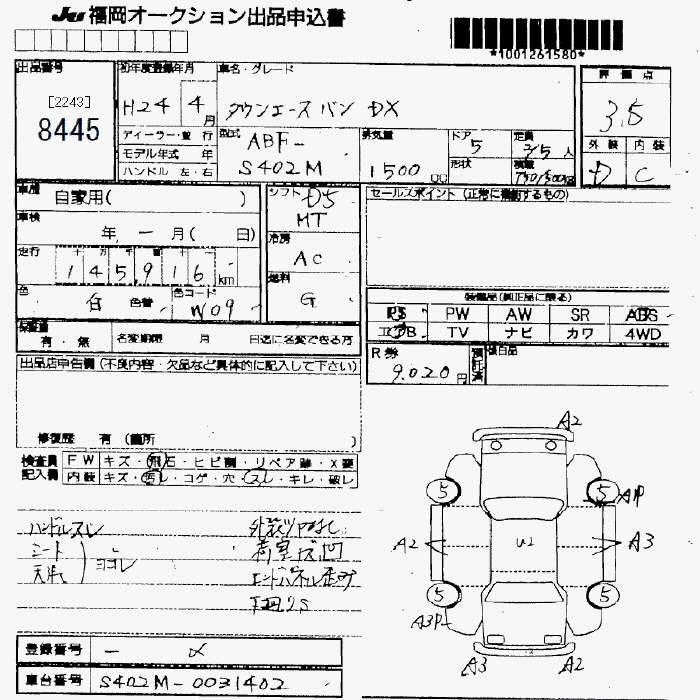 JU 福岡オークション出品申込書
*1001261580*
出品番号
[2243]
8445
初年度登録年月
H24 4月
車名・グレード
タウンエース バン DX
評価点
3.5
ディーラー・並行
モデル年式 年
ハンドル 左・右
型式
ABF-
S402M
排気量
1500 cc
ドア
5
形状
定員
2/5人
積載
外装 内装
D C
車歴
自家用( )
車検
年 - 月( 日)
走行
145916 km
色
白 色替
色コード
W09
シフト D5
MT
冷房
AC
燃料
G
セールスポイント (正常に機能するもの)
装備品(純正品に限る)
PS PW AW SR ABS
エアB TV ナビ カワ 4WD
保証書
有・無
名変期限 月 日迄に名変できる方
R券
9.020円
預託済
出品店申告欄 (不良内容・欠品など具体的に記入して下さい)
修復歴 有 (箇所 )
検査員 FW キズ・飛石・ヒビ割・リペア跡・X要
記入欄 内装 キズ・汚レ・コゲ・穴・スレ・キレ・破レ
ハンドルスレ
シート
天井
ヨゴレ
外装ツヤなし
荷室キズ凹
下回りS
A2
5 5
A1P
A2 U2 A3
5 5
A3P
A3 A2
登録番号 - 〆
車台番号 S402M-0031402